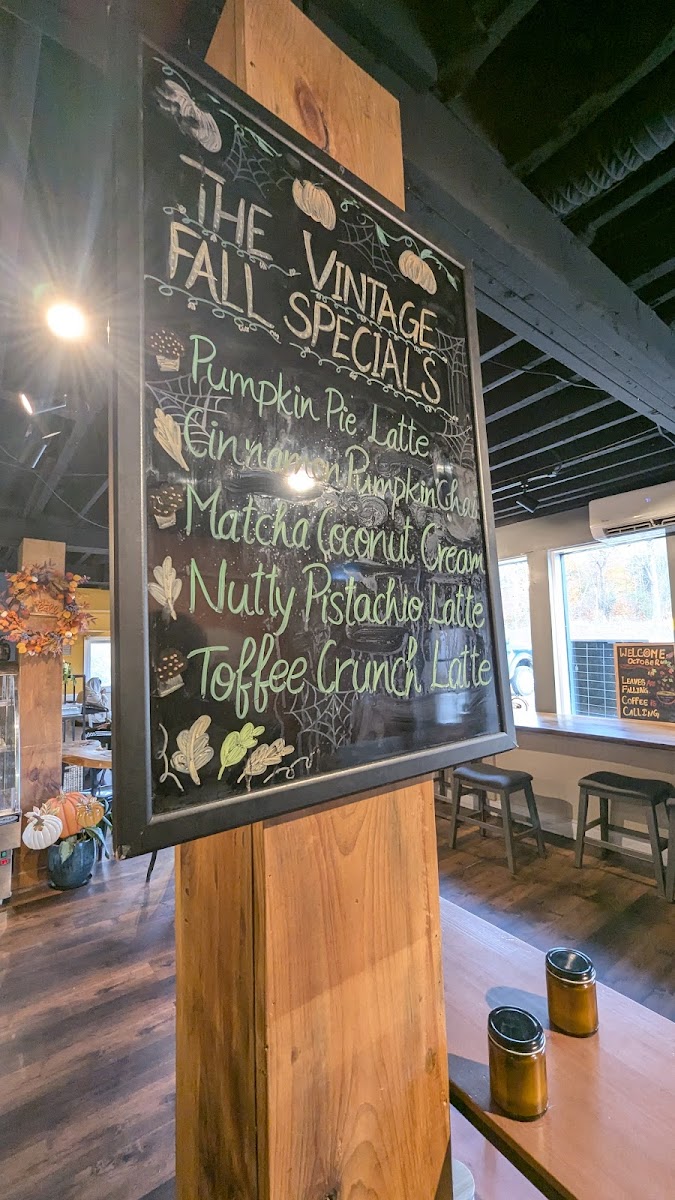 THE VINTAGE
FALL SPECIALS
Pumpkin Pie Latte
Cinnamon Pumpkin Chai
Matcha Coconut Cream
Nutty Pistachio Latte
Toffee Crunch Latte
WELCOME
OCTOBER
LEAVES
FALLING
COFFEE
CALLING